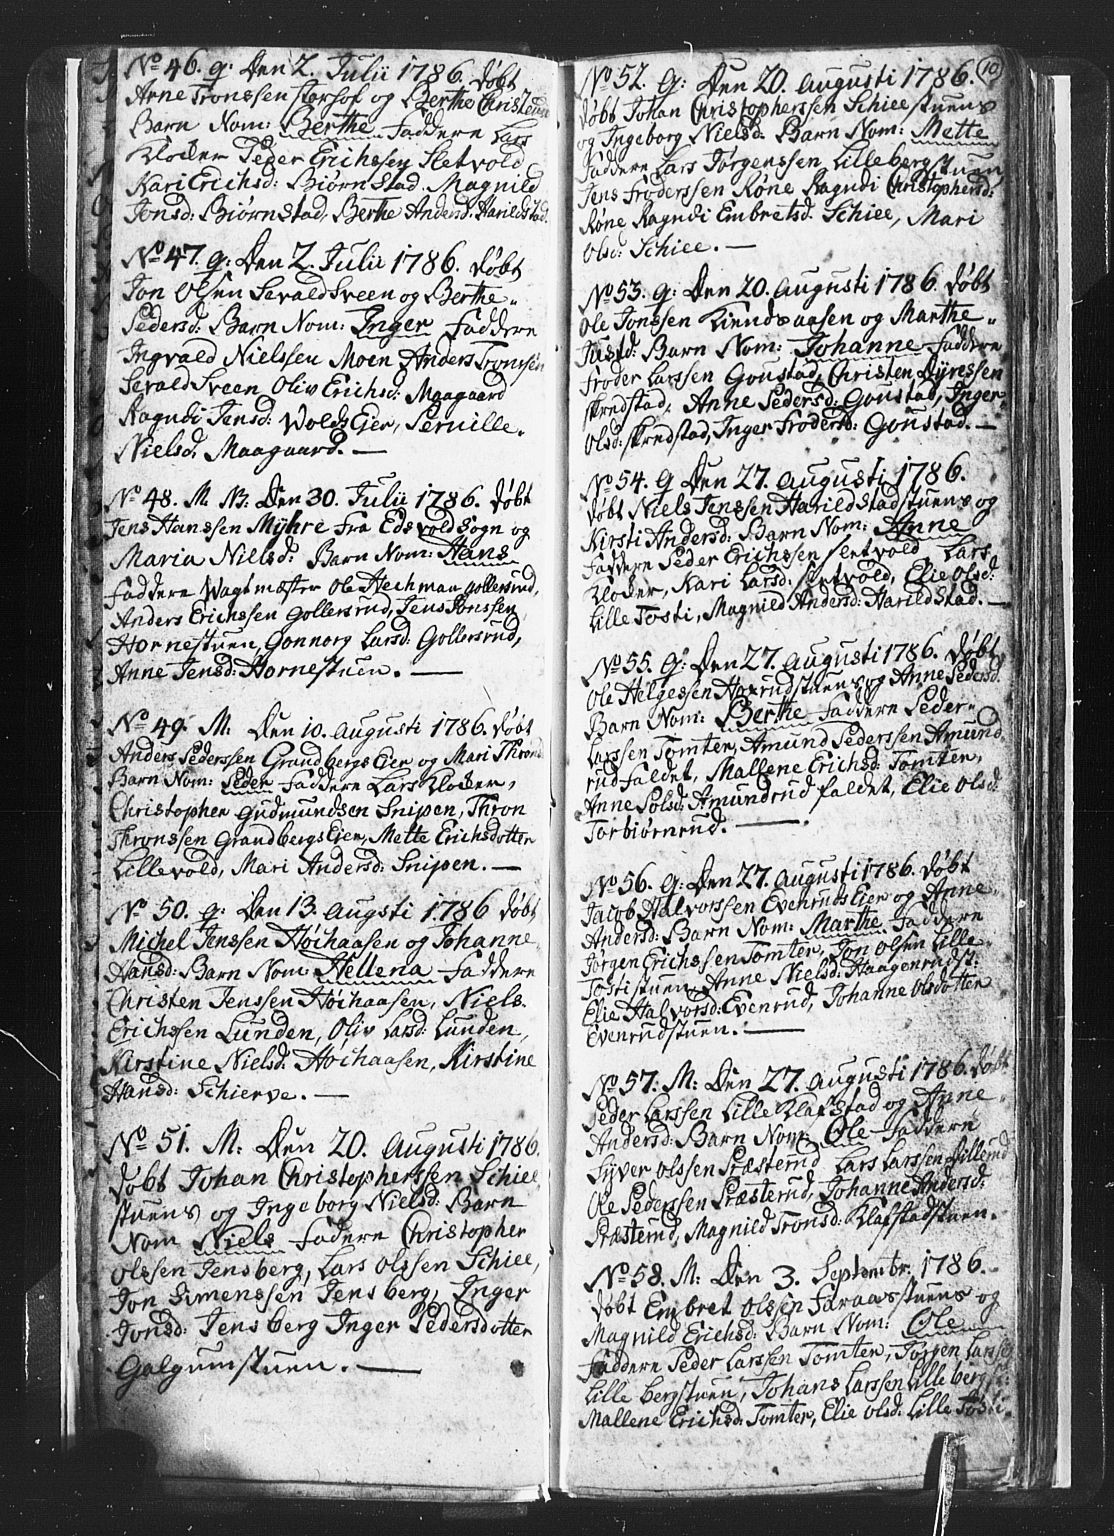 No 46. g: Den 2. Julii 1786. døbt
Arne Tronssen storhof og Berthe Christensd
Barn Nom: Berthe Faddere Lars
Kloker Peder Erichssen Sletvold
Kari Erichsd: Biørnstad. Magnild
Jonsd: Biørnstad, Berthe Andersd. Harildstad.
No 47. g: Den 2. Julii 1786. døbt
Jon Olsen Sevaldsveen og Berthe
Pedersd: Barn Nom: Inger Faddere
Ingvald Nielssen Moen Anders Tronssen
Sevaldsveen Oliv Erichsd: Maagaard
Ragndi Jensd: WoldsEjer, Pernille
Nielsd. Maagaard. —
No 48. M. N: Den 30. Julii 1786. døbt
Jens Hanssen Myhre fra Edsvold Sogn og
Maria Nielsd: Barn Nom: Hans
Faddere Wagtmester Ole Heckman gollersrud,
Anders Erichssen Gollersrud, Jens Jonssen
Hornestuen, Gonnorg Larsd: Gollersrud,
Anne Jensd: Hornestuen. —
No 49. M. Den 10. Augusti 1786. døbt
Anders Pederssen GrandbergsEjer og Mari Thronsd
Barn Nom: Peder Faddere Lars Kloker,
Christopher Gudmundsen Snipen, Thron
Thronssen GrandbergsEjer, Mette Erichsdotter
Lillevold, Mari Andersd: Snipen. —
No 50. g: Den 13. Augsti 1786 døbt
Michel Jenssen Høihaasen og Johanne
Hansd: Barn Nom: Hellena Faddere
Christen Jenssen Høihaasen, Niels
Erichssen Lunden, Oliv Larsd: Lunden,
Kirstine Nielsd: Høihaasen, Kirstine
Hansd: Schierve. —
No 51. M. Den 20. Augusti 1786.
døbt Johan Christopherssen Schiee
stuens og Ingeborg Nielsd: Barn
Nom Niels Fadere Christopher
Olssen Jensberg, Lars Olssen Schiee,
Jon Simenssen Jensberg, Inger
Jonsd: Jensberg Inger Pedersdotter
Galgumstuen. —
10
No 52. g: Den 20. Augusti 1786.
døbt Johan Christopherssen Schiee stuens
og Ingeborg Nielsd: Barn Nom: Mette
Faddere Lars Jørgenssen Lillebergstuen
Jens Froderssen Røne Ragndi Christophersd:
Røne Ragndi Embretsd. Schiee, Mari
Olsd: Schiee. —
No 53. g: Den 20. Augusti 1786. døbt
Ole Jonssen Kiendsaasen og Marthe
Justd: Barn Nom: Johanne Faddere
Froder Larssen Gonstad, Christen Dyressen
skredstad, Anne Pedersd: Gonstad, Inger
Olsd: skredstad, Inger Frodersd: Gonstad. —
No 54. g Den 27. Augusti 1786.
døbt Niels Jenssen Harildstadstuens og
Kirsti Andersd: Barn Nom: Anne
Faddere Peder Erichssen sletvold, Lars
Kloker, Kari Larsd: sletvold, Elie Olsd:
Lille Tosti, Magnild Andersd: Harildstad. —
No 55. g: Den 27. Augusti 1786. døbt
Ole Helgessen Hoxrudstuens og Anne Pedersd:
Barn Nom: Berthe Faddere Peder
Larssen Tomter, Amund Pederssen Amund
rudfaldet, Mallene Erichsd: Tomter,
Anne Polsd: Amundrud faldet, Elie Olsd:
Torbiørnrud. —
No 56. g: Den 27. Augusti 1786. døbt
Jacob Halvorssen EvenrudsEier og Anne
Andersd: Barn Nom: Marthe Faddere
Jørgen Erichssen Tomter, Jon Olsen Lille
Tostistuen, Anne Nielsd: Haagenrudst:
Elie Halvorsd: Evenrud, Johanne Olsdotter
Evenrudstuen. —
No 57. M: Den 27. Augusti 1786. døbt
Peder Larssen Lille Klafstad og Anne
Andersd: Barn Nom: Ole Faddere
Syver Olssen Præsterud Lars Larssen Lillerud
Ole Pederssen Præsterud, Johanne Andersd:
Præsterud, Magnild Tronsd: Klafstadstuen.
No 58. M: Den 3. Septembr. 1786.
døbt Embret Olssen Faraasstuens og
Magnild Erichsd: Barn Nom: Ole
Faddere Peder Larssen Tomter, Jørgen Larssen
Lille bergstuen, Johans Larssen Lille bergst:
Mallene Erichsd: Tomter, Elie Olsd: Lille Tosti.